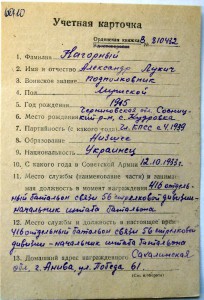 Учетная карточка
Орденская книжка В 310412
1. Фамилия Нагорный
2. Имя и отчество Александр Лукич
3. Воинское звание подполковник
4. Пол Мужской
5. Год рождения 1915
6. Место рождения
р-н, с.
7. Партийность (с какого года) чл. КПСС с 4.1939
8. Образование Низшее
9. Национальность Украинец
10. С какого года в Советской Армии 12.10.1933 г.
11. Место службы (наименование части) и занимаемая
должность в момент награждения 416 отдель
ный батальон связи 56 стрелковой дивизии-
начальник штаба батальона
12. Место службы и должность в настоящее время
416 отдельный батальон связи 56 стрелковой
дивизии - начальник штаба батальона
13. Домашний адрес награжденного Сахалинская
обл. г. Анива, ул. Победы 61